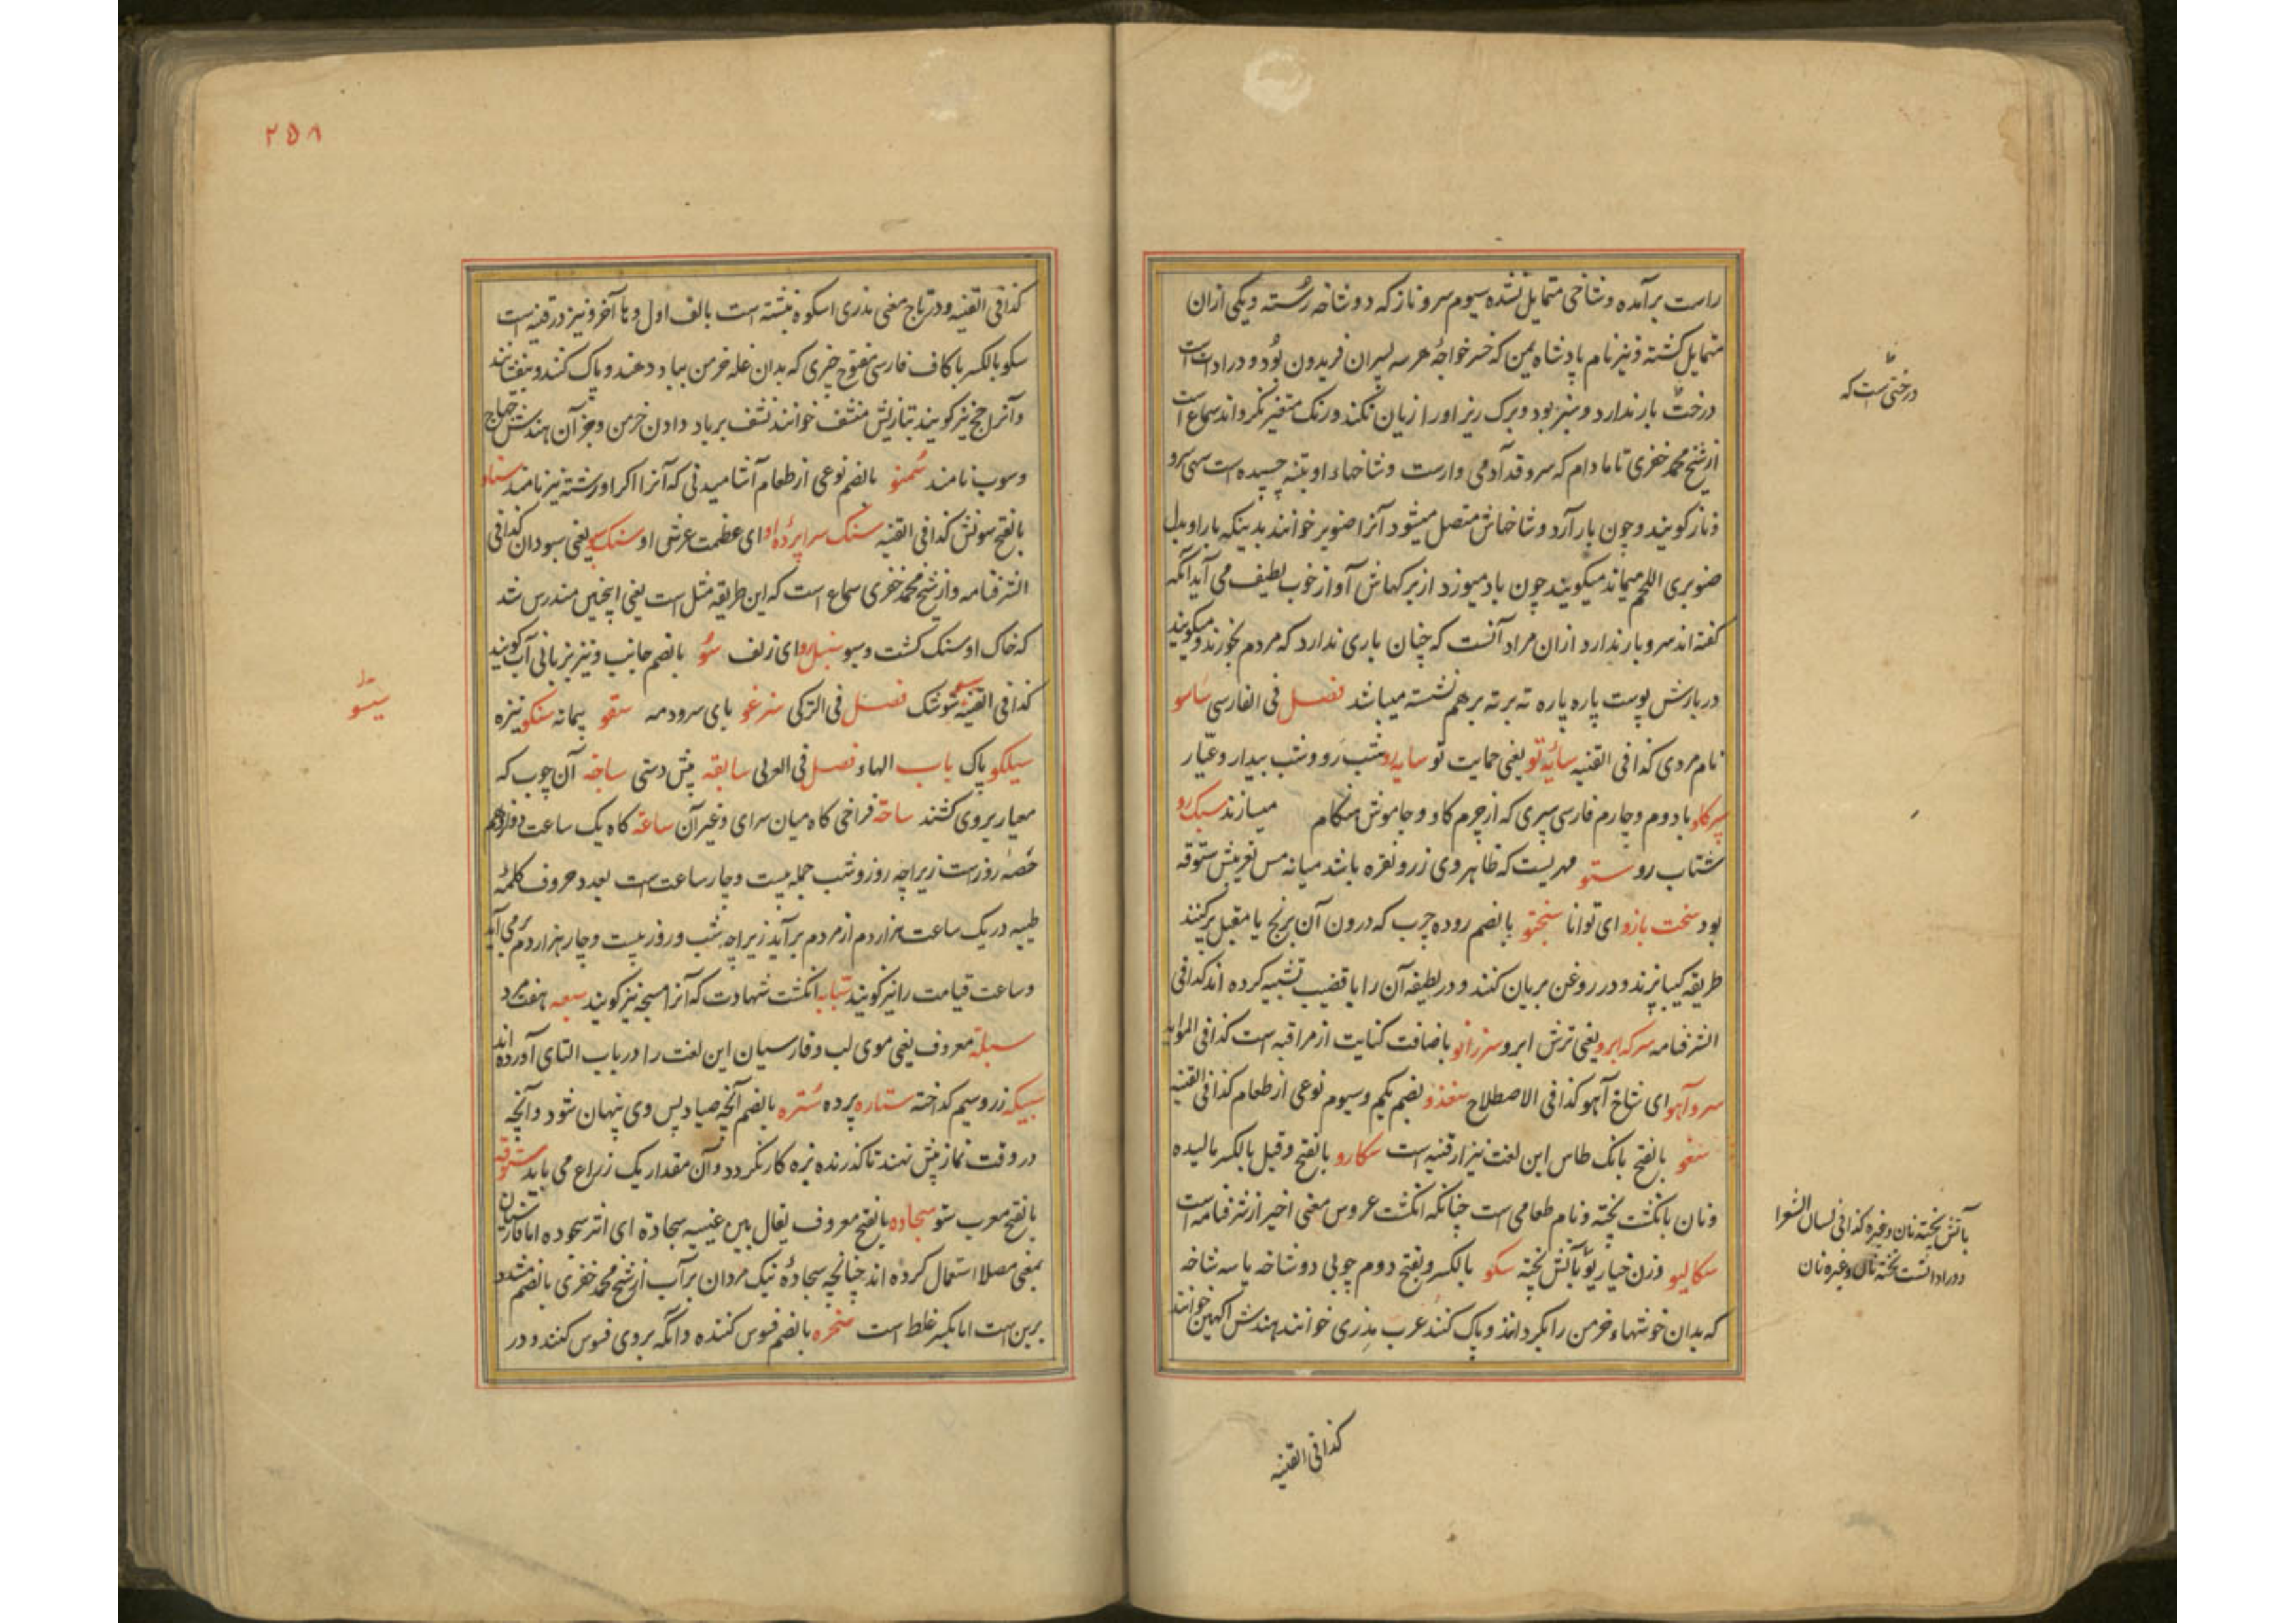 راست برآمده و شاخی متمایل نشده سیوم سرو ناز که دو شاخه رسته و یکی ازان
متمایل کشته و نیز نام پادشاه یمن که خسر خواجهٔ هر سه پسران فریدون بود و در ادات است
درخت بار ندارد و سبز بود و برک ریز او را زیان نکند و رنک متغیر نکرداند سماع است
از شیخ محمد خضری تا مادام که سرو قد آدمی وارست و شاخهاء او بتنه چسپیده است سهی سرو
و ناز کویند و چون بار آرد و شاخهاش متصل میشود آنرا صنوبر خوانند بدینکه بار او بدل
صنوبری اللحم میماند میکویند چون باد میوزد از برکهاش آواز خوب لطیف می آید آنکه
کفته اند سرو بار ندارد ازان مراد آنست که چنان باری ندارد که مردم بخورند و میکویند
در بارش پوست پاره پاره ته بر ته بر هم نشسته میباشد فصل فی الفارسی ساسو
نام مردی کذا فی القنیه سایهٔ تو یعنی حمایت تو سایه رو شب رو و شب بیدار و عیار
سپر کاو با دوم و چارم فارسی سپری که از چرم کاو و جاموش میسازند سبک رو
شتاب رو ستو مهریست که ظاهر وی زر و نقره باشد میانه مس تعریبش ستوقه
بود سخت بازو ای توانا سختو بالضم روده چرب که درون آن برنج یا مقبل پرکنند
طریقه کیپا پزند و در روغن بریان کنند و در لطیفه آن را با قضیب تشبیه کرده اند کذا فی
الشرفنامه سرکه ابرو یعنی ترش ابرو سر زانو باضافت کنایت از مراقبه است کذا فی الموائد
سرو آهو ای شاخ آهو کذا فی الاصطلاح سغذو بضم یکم و سیوم نوعی از طعام کذا فی القنیه
سغو بالفتح بانک طاس این لغت نیز از قنیه است سکارو بالفتح و قیل بالکسر مالیده
و نان بانکشت پخته و نام طعامی است چنانکه انکشت عروس معنی اخیر از شرفنامه است
سکالیو وزن خیار یو بآتش پخته سکو بالکسر و بفتح دوم چوبی دو شاخه یا سه شاخه
که بدان خوشهاء خرمن را بکردانند و پاک کنند عرب مذری خوانند هندش اکهین خوانند
درختی است که
بآتش پخته نان و غیره کذا فی لسان الشعرا
و در ادا انست پخته نان و غیره نان
کذا فی القنیه
۲۵۸
کذا فی القنیه و در تاج معنی مذری اسکوه نبشته است بالف اول و ها آخر و نیز در قنیه است
سکو بالکسر با کاف فارسی مفتوح چیزی که بدان غله خرمن بباد دهند و پاک کنند و بیفشانند
و آنرا چج نیز کویند بتازیش منشف خوانند نشف بر باد دادن خرمن و جز آن هندش چهاج
و سوپ نامند سمنو بالضم نوعی از طعام آشامیدنی که آنرا اکرا و رشته نیز نامند سناو
بالفتح سونش کذا فی القنیه سنک سراپردهٔ او ای عظمت عرش او سنک سبو یعنی سبودان کذا فی
الشرفنامه و از شیخ محمد خضری سماع است که این طریقه مثل است یعنی اینچنین مندرس شد
که خاک او سنک کشت و سبو سنبل رو ای زلف سو بالضم جانب و نیز بزبانی آب کویند
کذا فی القنیه سو شک فصل فی الترکی سرغو بای سرودمه سقو پیمانه سنکو نیزه
سیلکو پاک باب الهاء فصل فی العربی سابقه پیش دستی ساجه آن چوب که
معیار بروی کشند ساحة فراخی کاه میان سرای و غیر آن ساعة کاه یک ساعت دوازدهم
حصهٔ روز است زیراچه روز و شب جمله بیست و چار ساعت است بعدد حروف کلمهٔ
طیبه در یک ساعت هزار دم از مردم برآید زیراچه شب و روز بیست و چار هزار دم برمی آید
و ساعت قیامت را نیز کویند سبابه انکشت شهادت که آنرا مسبحه نیز کویند سبعه هفت مرد
سبلة معروف یعنی موی لب و فارسیان این لغت را در باب التای آورده اند
سبیکه زر و سیم کداخته ستاره پرده ستره بالضم آنچه صیاد پس وی پنهان شود و آنچه
در وقت نماز پیش نهند تا کذرنده بزه کار نکردد و آن مقدار یک زراع می باید ستوقه
بالفتح معرب ستو سجاده بالفتح معروف یقال بین عینیه سجادة ای اثر سجوده اما فارسیان
بمعنی مصلا استعمال کرده اند چنانچه سجادهٔ نیک مردان بر آب از شیخ محمد خضری بالضم مشدد
برین است اما بکسر غلط است سخره بالضم فسوس کننده و آنکه بروی فسوس کنند و در
سیسو